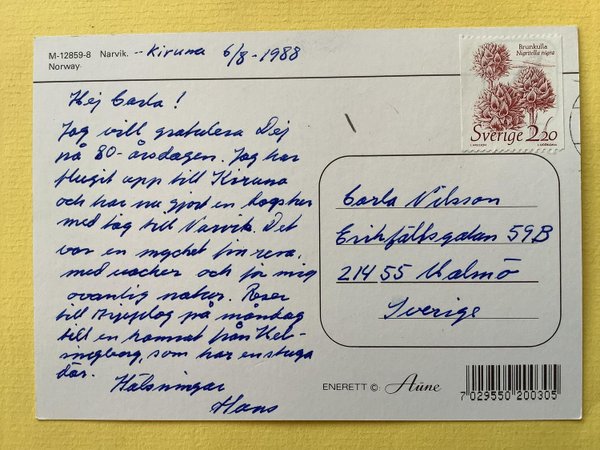 M-12859-8 Narvik. -- Kiruna 6/8-1988
Norway
Brunkulla
Nigritella nigra
Sverige 2.20
Hej Carla!
Jag vill gratulera Dej
på 80-årsdagen. Jag har
flugit upp till Kiruna
och har nu gjort en dagstur
med tåg till Narvik. Det
var en mycket fin resa,
med vacker och för mig
ovanlig natur. Reser
till Arjeplog på måndag
till en kamrat från Hel-
singborg, som har en stuga
där.
Hälsningar
Hans
Carla Nilsson
Erikfältsgatan 59B
214 55 Malmö
Sverige
ENERETT ©: Aune
7 029550 200305